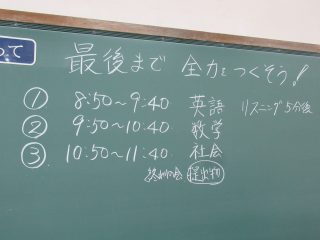 って
最後まで 全力をつくそう!
① 8:50～9:40 英語 リスニング5分後
② 9:50～10:40 数学
③ 10:50～11:40 社会
終わりの会 提出物